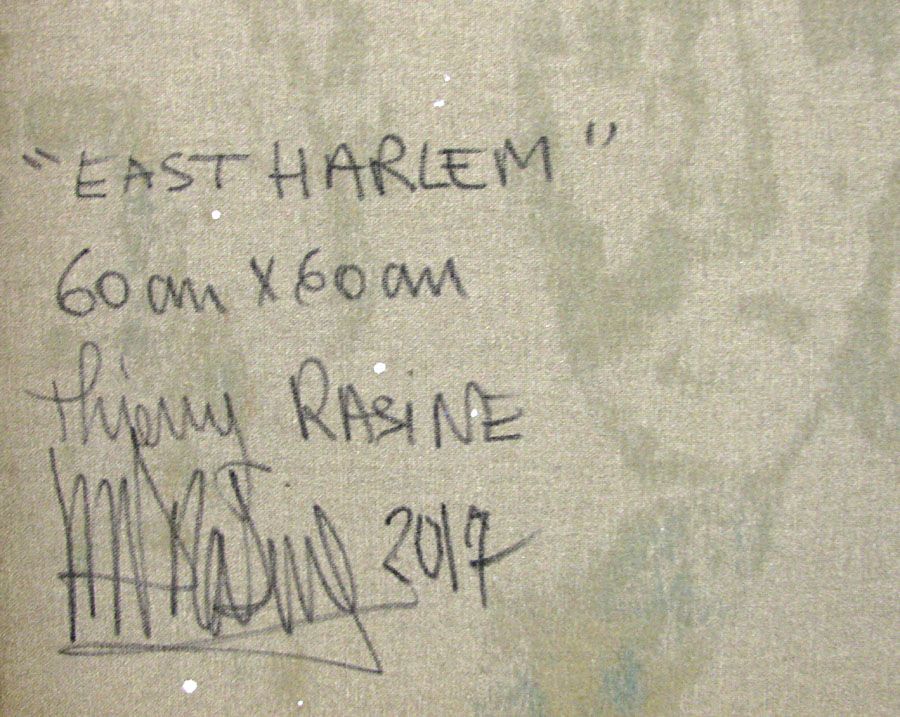 "EAST HARLEM"
60 cm X 60 cm
Thierry RASINE
2017